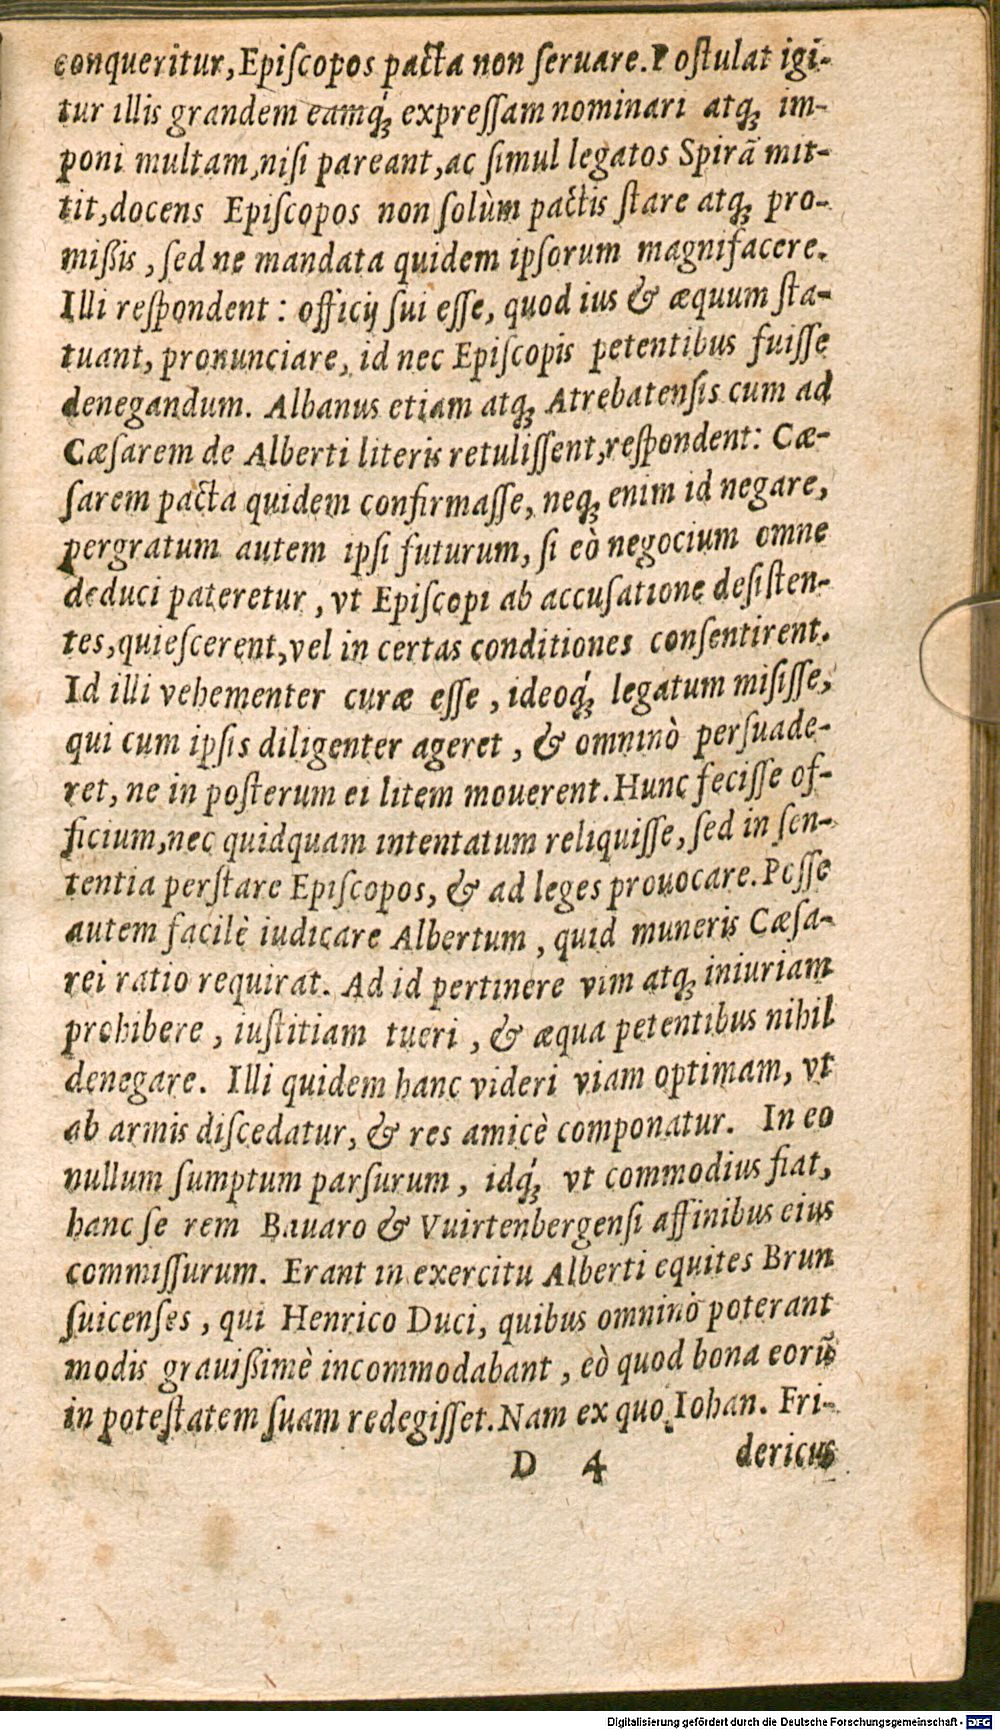 conqueritur, Epiſcopos pacta non ſeruare. Poſtulat igi-
tur illis grandem eamq́; expreſſam nominari atq; im-
poni multam, niſi pareant, ac ſimul legatos Spirã mit-
tit, docens Epiſcopos non ſolùm pactis ſtare atq; pro-
miſsis, ſed ne mandata quidem ipſorum magnifacere.
Illi reſpondent: officij ſui eſſe, quod ius & æquum ſta-
tuant, pronunciare, id nec Epiſcopis petentibus fuiſſe
denegandum. Albanus etiam atq; Atrebatenſis cum ad
Cæſarem de Alberti literis retuliſſent, reſpondent: Cæ-
ſarem pacta quidem confirmaſſe, neq; enim id negare,
pergratum autem ipſi futurum, ſi eò negocium omne
deduci pateretur, vt Epiſcopi ab accuſatione deſiſten-
tes, quieſcerent, vel in certas conditiones conſentirent.
Id illi vehementer curæ eſſe, ideoq́; legatum miſiſſe,
qui cum ipſis diligenter ageret, & omninò perſuade-
ret, ne in poſterum ei litem mouerent. Hunc feciſſe of-
ficium, nec quidquam intentatum reliquiſſe, ſed in ſen-
tentia perſtare Epiſcopos, & ad leges prouocare. Poſſe
autem facilè iudicare Albertum, quid muneris Cæſa-
rei ratio requirat. Ad id pertinere vim atq; iniuriam
prohibere, iuſtitiam tueri, & æqua petentibus nihil
denegare. Illi quidem hanc videri viam optimam, vt
ab armis diſcedatur, & res amicè componatur. In eo
nullum ſumptum parſurum, idq́; vt commodius fiat,
hanc ſe rem Bauaro & Vuirtenbergenſi affinibus eius
commiſſurum. Erant in exercitu Alberti equites Brun
ſuicenſes, qui Henrico Duci, quibus omninò poterant
modis grauiſsimè incommodabant, eò quod bona eorũ
in poteſtatem ſuam redegiſſet. Nam ex quo Iohan. Fri-
D 4 dericus
Digitalisierung gefördert durch die Deutsche Forschungsgemeinschaft - DFG